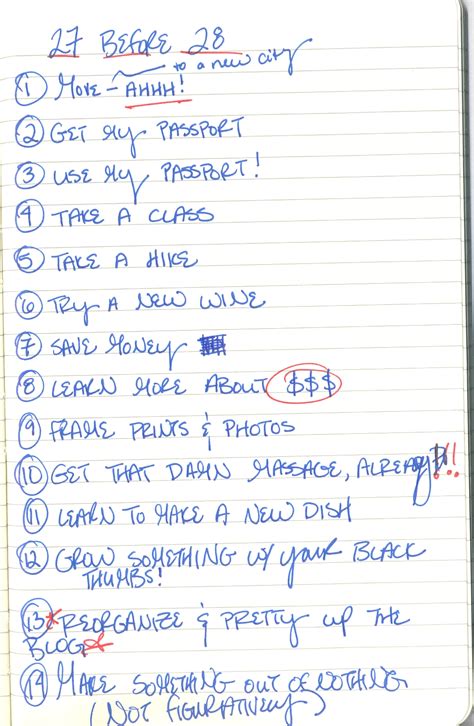 27 BEFORE 28
to a new city
① MOVE - AHHH!
② GET MY PASSPORT
③ USE MY PASSPORT!
④ TAKE A CLASS
⑤ TAKE A HIKE
⑥ TRY A NEW WINE
⑦ SAVE MONEY
⑧ LEARN MORE ABOUT $$$
⑨ FRAME PRINTS & PHOTOS
⑩ GET THAT DAMN MASSAGE, ALREADY!!!
⑪ LEARN TO MAKE A NEW DISH
⑫ GROW SOMETHING W/ YOUR BLACK
THUMBS!
⑬ *REORGANIZE & PRETTY UP THE
BLOG*
⑭ MAKE SOMETHING OUT OF NOTHING
(NOT FIGURATIVELY)